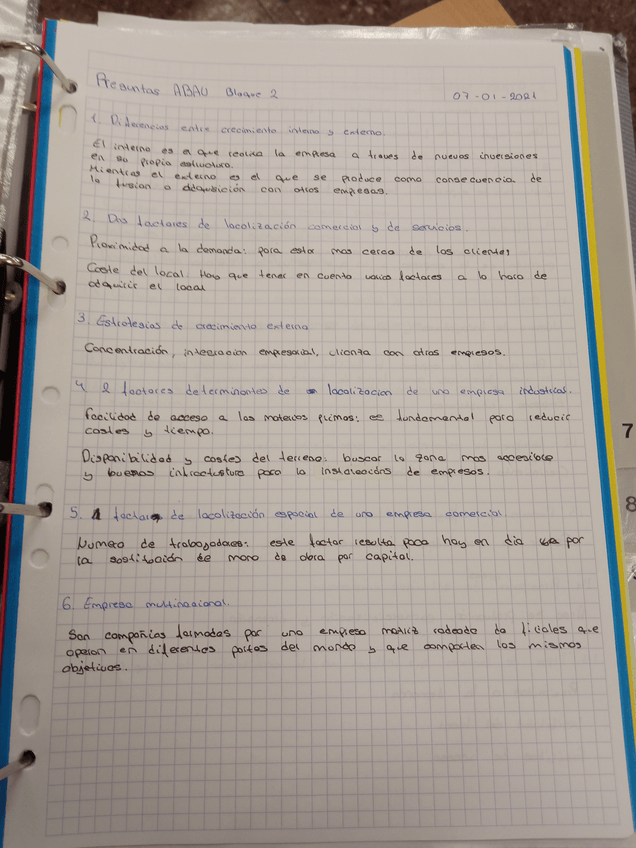 Preguntas ABAU Bloque 2
07-01-2021
1. Diferencias entre crecimiento interno y externo.
El interno es el que realiza la empresa a traves de nuevas inversiones
en su propia estructura.
Mientras el externo es el que se produce como consecuencia de
la fusion o adquisición con otras empresas.
2. Dos factores de localización comercial y de servicios.
Proximidad a la demanda: para estar mas cerca de los clientes
Coste del local. Hay que tener en cuenta varios factores a la hora de
adquirir el local
3. Estrategias de crecimiento externo
Concentración, integracion empresarial, alianza con otras empresas.
4 2 factores determinantes de localizacion de una empresa industrial.
Facilidad de acceso a las materias primas: es fundamental para reducir
costes y tiempo.
Disponibilidad y costes del terreno: buscar la zona mas accesible
y buenas infractustura para la instalacións de empresas.
5. 1 factor de localización espacial de una empresa comercial
Numero de trabajadores: este factor resulta poco hoy en dia por
la sostitución de mano de obra por capital.
6. Empresa multinacional.
Son compañias formadas por una empresa matriz rodeada de filiales que
operan en diferentes partes del mundo y que comparten los mismos
objetivos.
7
8